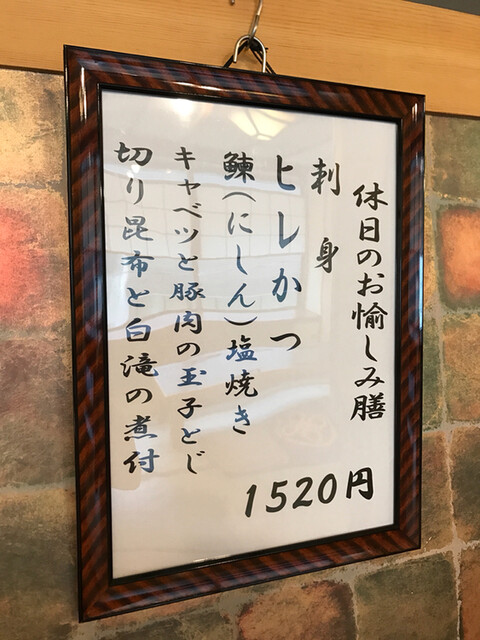 休日のお愉しみ膳
刺身
ヒレかつ
鰊(にしん)塩焼き
キャベツと豚肉の玉子とじ
切り昆布と白滝の煮付
1520円